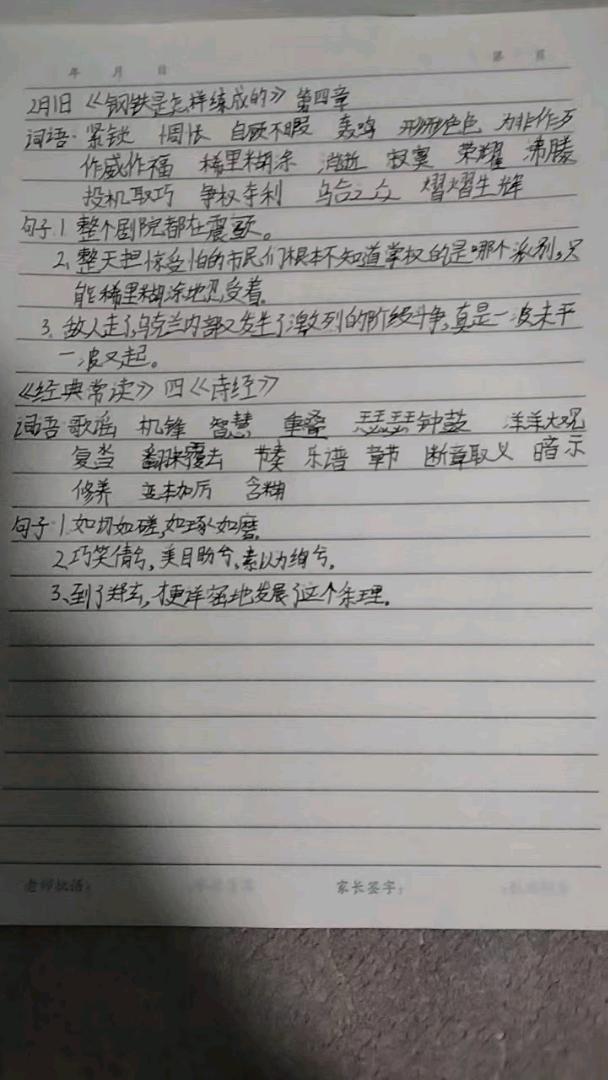 年 月 日
2月1日《钢铁是怎样练成的》第四章
词语:紧锁 惆怅 自顾不暇 轰鸣 形形色色 为非作歹
作威作福 稀里糊涂 消逝 寂寞 荣耀 沸腾
投机取巧 争权夺利 乌合之众 熠熠生辉
句子 1.整个剧院都在震颤。
2.整天担惊受怕的市民们根本不知道掌权的是哪个派别,只
能稀里糊涂地忍受着。
3.敌人走了,乌克兰内部又发生了激烈的阶级斗争,真是一波未平
一波又起。
《经典常谈》四《诗经》
词语:歌谣 机锋 智慧 重叠 琴瑟钟鼓 洋洋大观
复沓 翻来覆去 节奏 乐谱 章节 断章取义 暗示
修养 变本加厉 含糊
句子:1.如切如磋,如琢如磨。
2.巧笑倩兮,美目盼兮,素以为绚兮。
3.到了郑玄,才更详密地发展了这个条理。
老师批语:
家长签字: